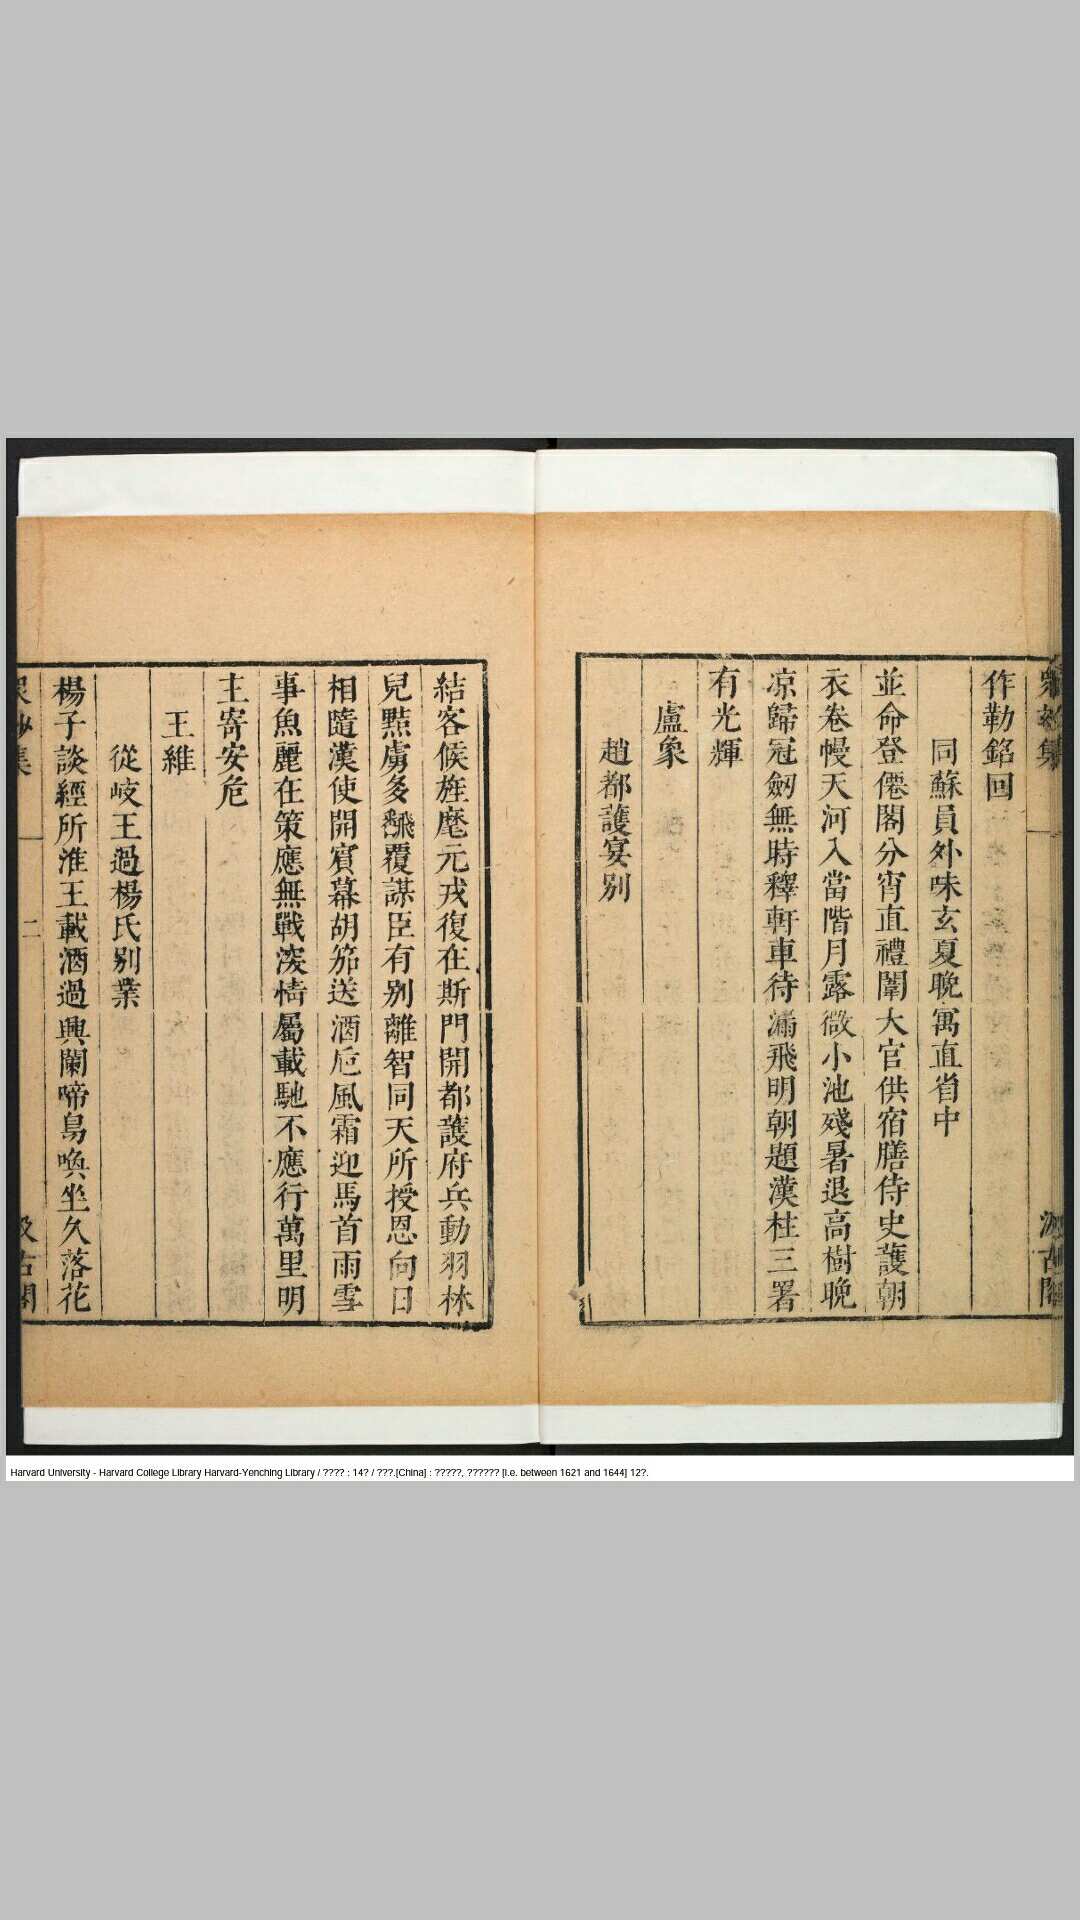 作勒銘回
同蘇員外味玄夏晚寓直省中
並命登僊閣分宵直禮闈大官供宿膳侍史護朝
衣卷幔天河入當階月露微小池殘暑退高樹晚
凉歸冠劒無時釋軒車待漏飛明朝題漢柱三署
有光輝
盧象
趙都護宴別
結客候旌麾元戎復在斯門開都護府兵動羽林
兒黠虜多翻覆謀臣有別離智同天所授恩向日
相隨漢使開賓幕胡笳送酒卮風霜迎馬首雨雪
事魚麗在策應無戰深情屬載馳不應行萬里明
主寄安危
王維
從岐王過楊氏別業
楊子談經所淮王載酒過興闌啼鳥喚坐久落花
二
Harvard University - Harvard College Library Harvard-Yenching Library / ???? : 14? / ???.[China] : ?????, ?????? [i.e. between 1621 and 1644] 12?.